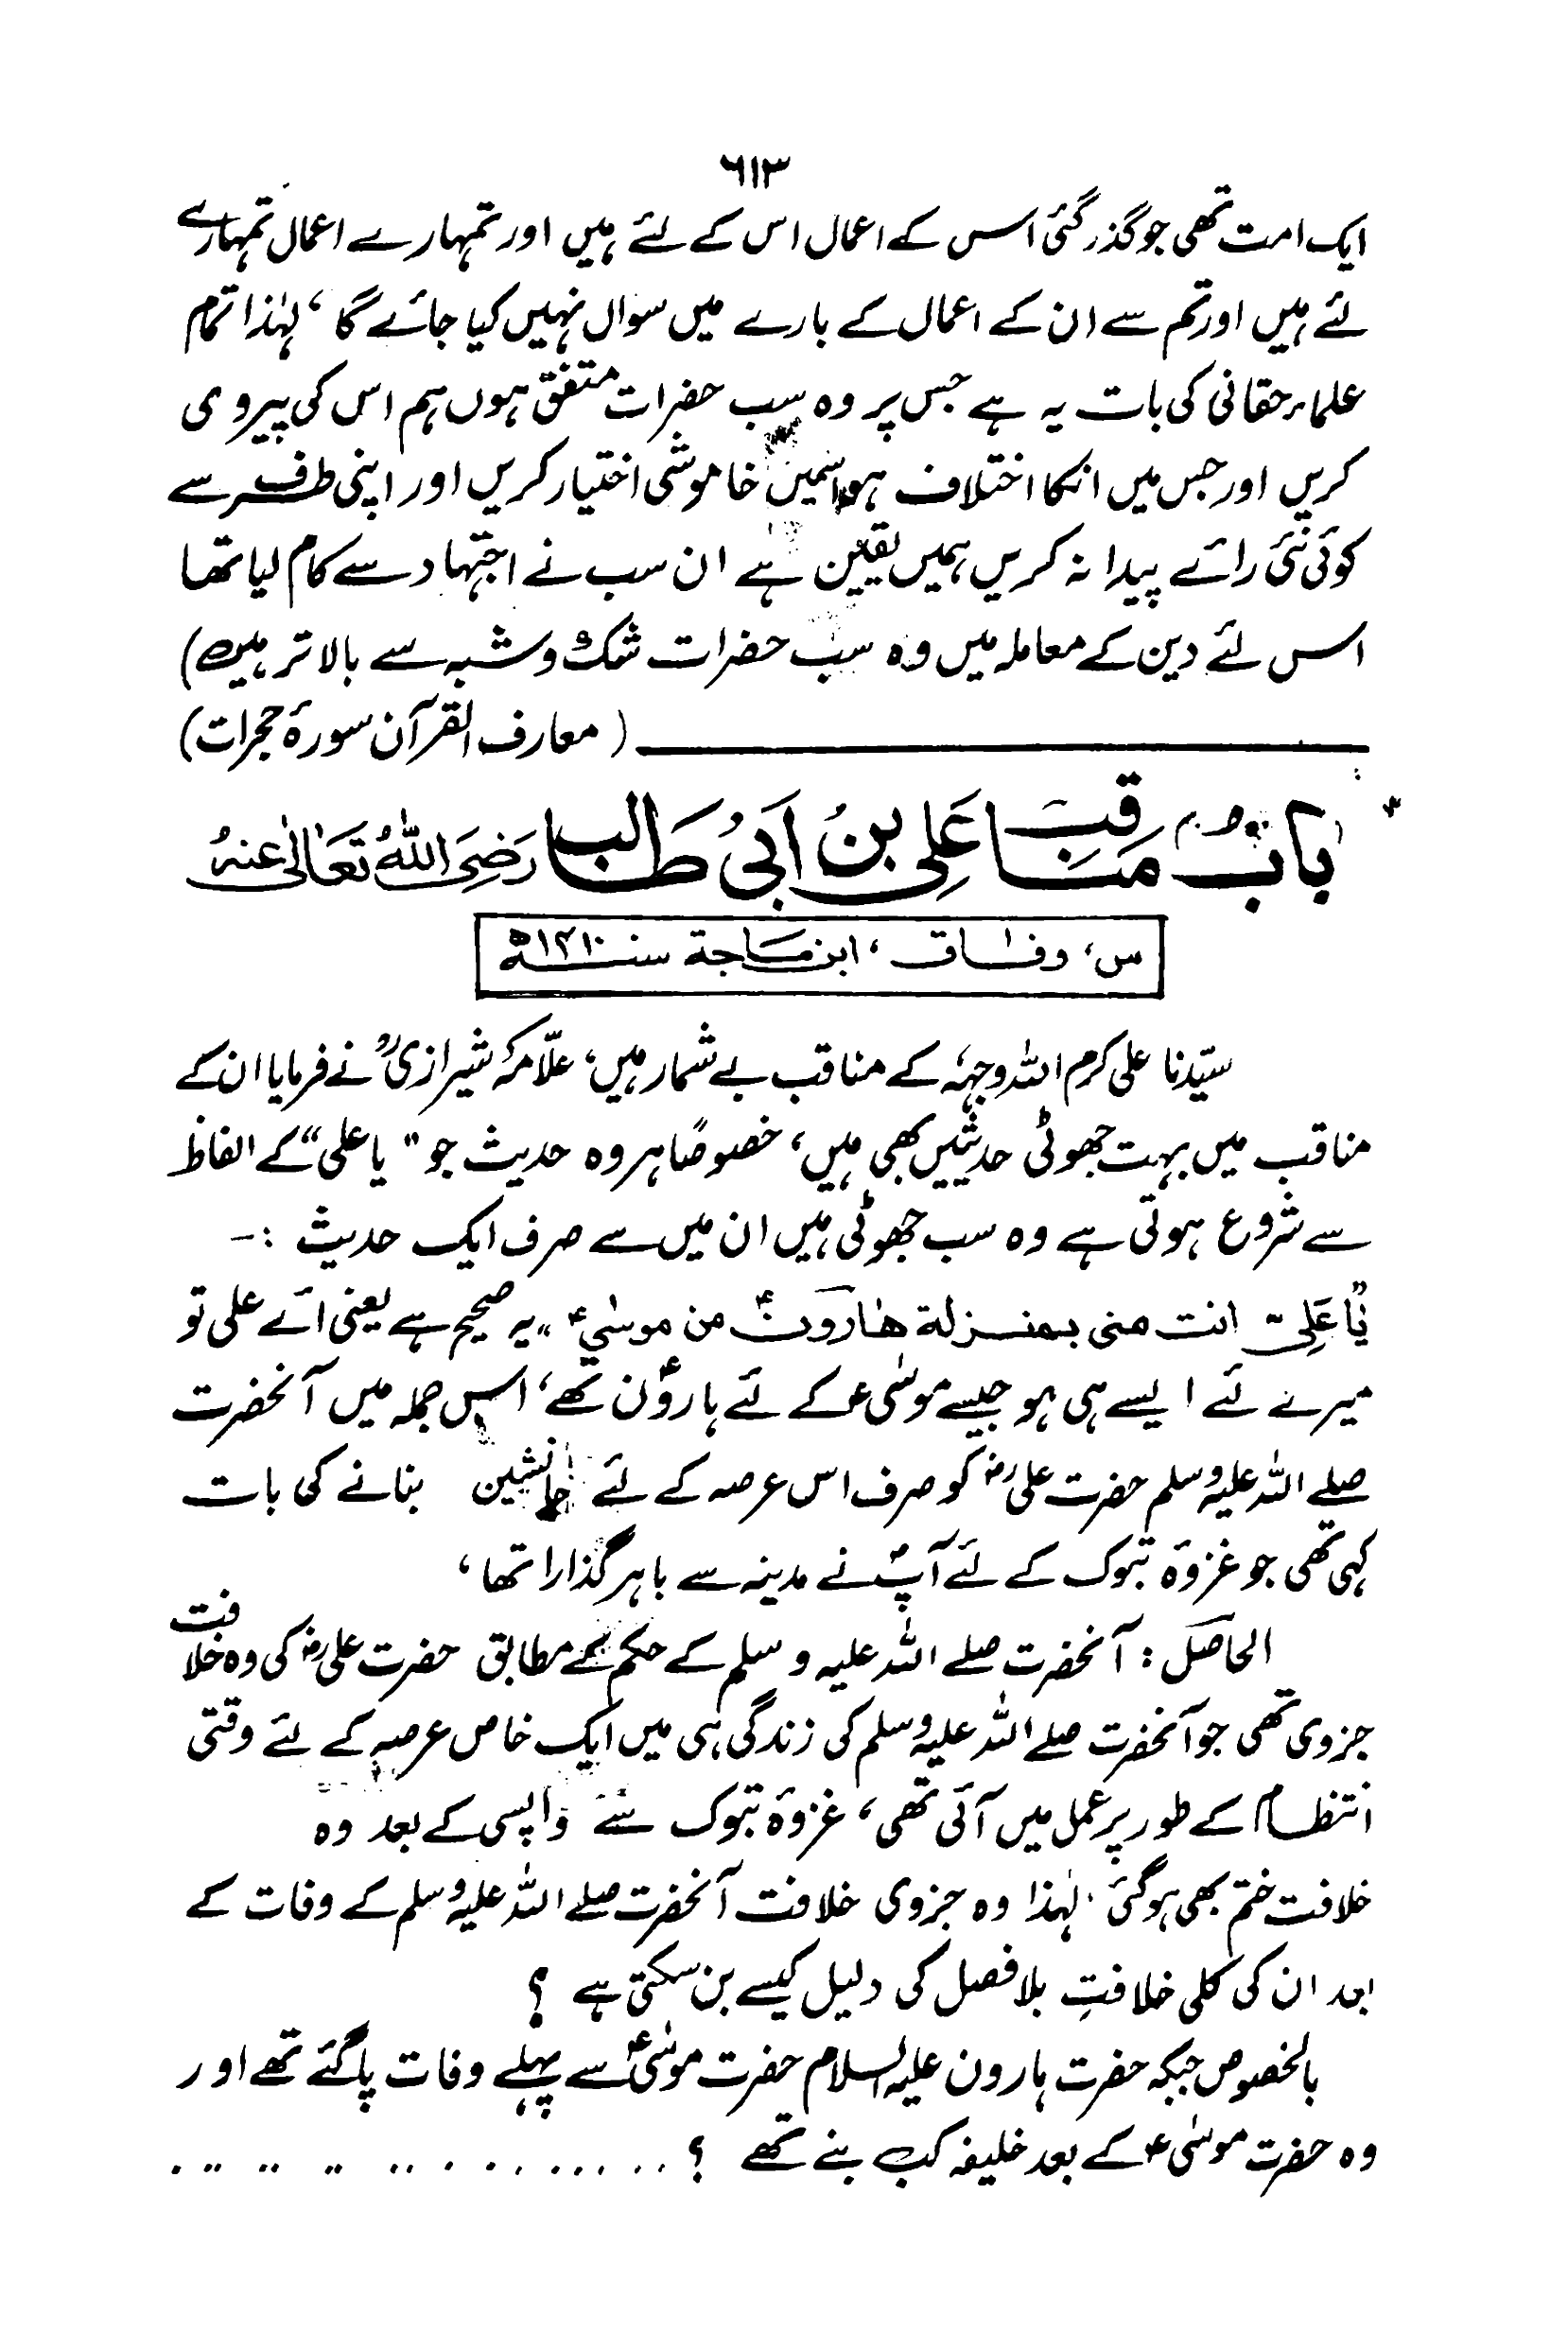 ٦١٣
ایک امت تھی جو گذر گئی اس کے اعمال اس کے لئے ہیں اور تمہارے اعمال تمہارے
لئے ہیں اور تم سے ان کے اعمال کے بارے میں سوال نہیں کیا جائے گا ، لہٰذا تمام
علماء حقانی کی بات یہ ہے جس پر وہ سب حضرات متفق ہوں ہم اس کی پیروی
کریں اور جس میں انکا اختلاف ہو اسمیں خاموشی اختیار کریں اور اپنی طرف سے
کوئی نئی رائے پیدا نہ کریں ہمیں یقین ہے ان سب نے اجتہاد سے کام لیا تھا
اس لئے دین کے معاملہ میں وہ سب حضرات شک و شبہ سے بالاتر ہیں)
( معارف القرآن سورۂ حجرات)
باب مناقب علی بن ابی طالب رضی اللہ تعالیٰ عنہ
س، وفاق ، ابن ماجة سنہ ١٤١٠ھ
سیّدنا علی کرم اللہ وجہہٗ کے مناقب بے شمار ہیں، علّامہ شیرازیؒ نے فرمایا ان کے
مناقب میں بہت جھوٹی حدیثیں بھی ہیں، خصوصًا ہر وہ حدیث جو "یا علی" کے الفاظ
سے شروع ہوتی ہے وہ سب جھوٹی ہیں ان میں سے صرف ایک حدیث :-
"یَا عَلِیّ انت منی بمنزلة هارون من موسیٰ" یہ صحیح ہے یعنی اے علی تو
میرے لئے ایسے ہی ہو جیسے موسٰیؑ کے لئے ہارونؑ تھے، اس جملہ میں آنحضرت
صلے اللہ علیہ وسلم حضرت علیؓ کو صرف اس عرصہ کے لئے جانشین بنانے کی بات
کہی تھی جو غزوۂ تبوک کے لئے آپؐ نے مدینہ سے باہر گذارا تھا،
الحاصل : آنحضرت صلے اللہ علیہ وسلم کے حکم کے مطابق حضرت علیؓ کی وہ خلافت
جزوی تھی جو آنحضرت صلے اللہ علیہ وسلم کی زندگی ہی میں ایک خاص عرصہ کے لئے وقتی
انتظام کے طور پر عمل میں آئی تھی، غزوۂ تبوک سے واپسی کے بعد وہ
خلافت ختم بھی ہوگئی . لہٰذا وہ جزوی خلافت آنحضرت صلے اللہ علیہ وسلم کے وفات کے
بعد ان کی کلی خلافتِ بلا فصل کی دلیل کیسے بن سکتی ہے ؟
بالخصوص جبکہ حضرت ہارون علیہ السلام حضرت موسٰیؑ سے پہلے وفات پاگئے تھے اور
وہ حضرت موسٰیؑ کے بعد خلیفہ کب بنے تھے ؟ . . . . . . . . . . . . . . . . .